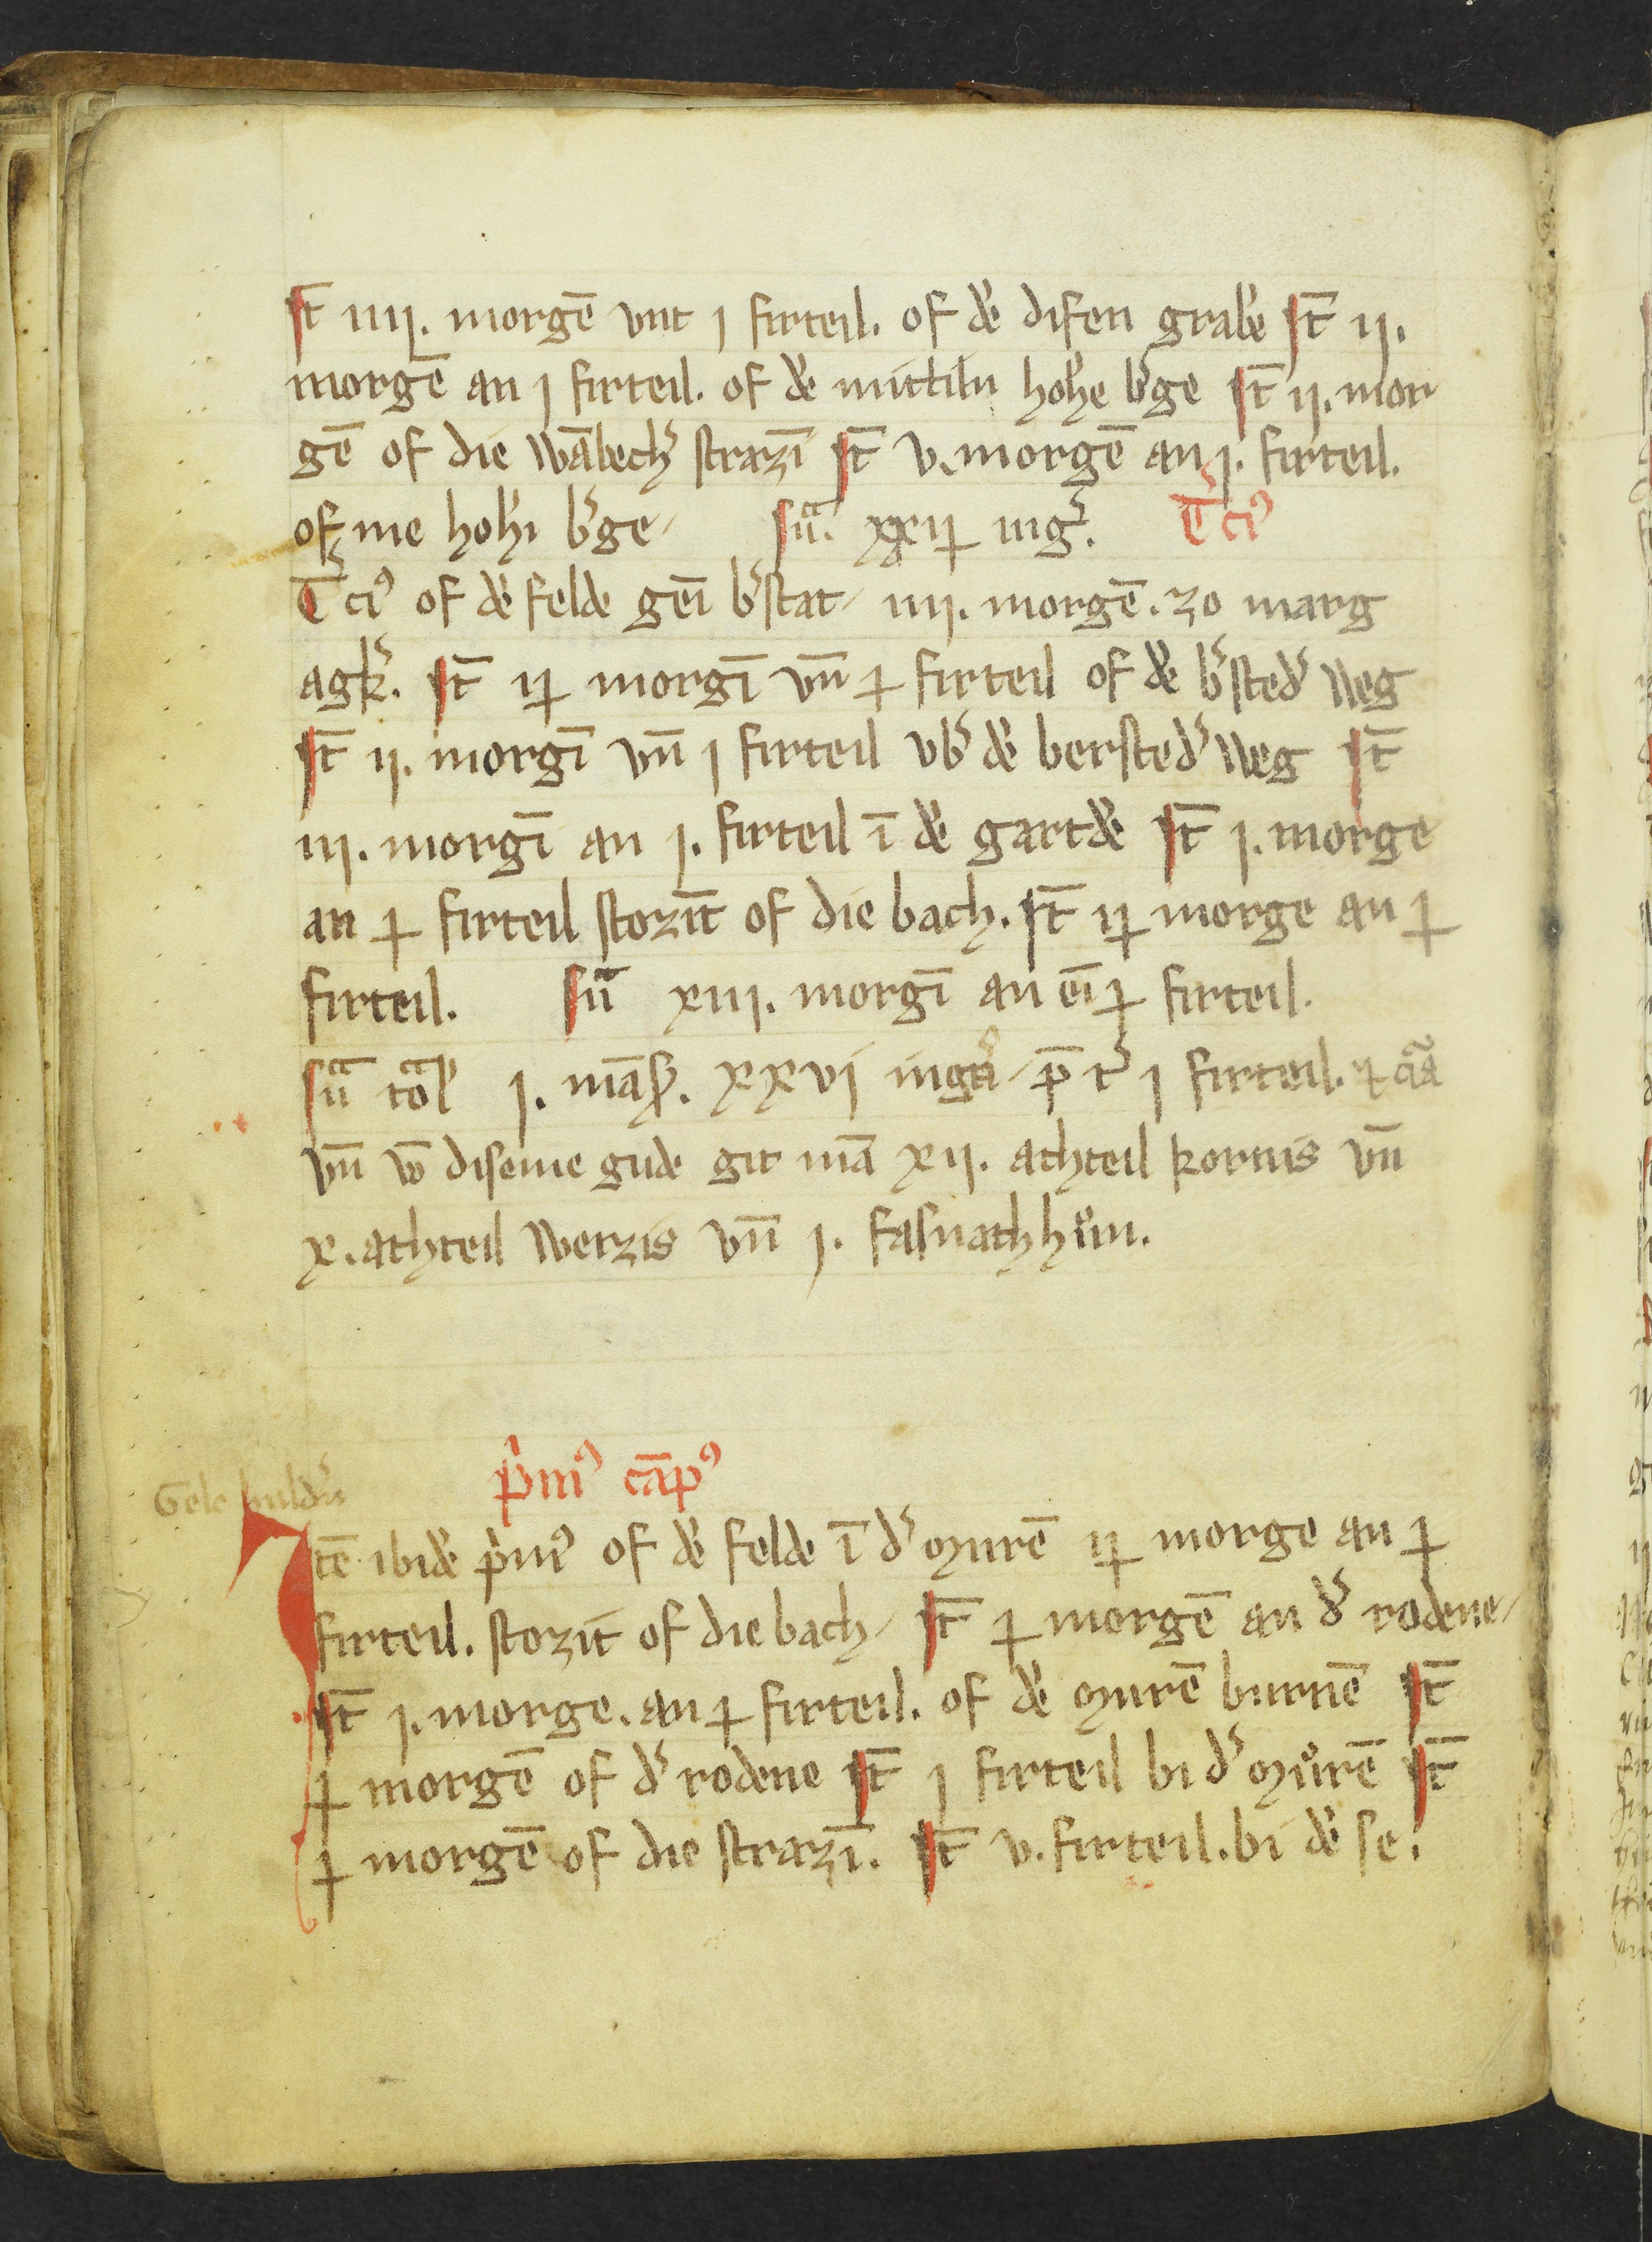 It̄ iiij. morgē vnt j firteil. of dē difen grabē It̄ ij.
morgē an j firteil. of dē mittiln hohē b͛ge It̄ ij. mor
gē of die wābech͛ strazī It̄ v. morgē an j. firteil.
of me hohī b͛ge sūᵃ. xxij iug͛. T͛ciꝰ
T͛ciꝰ of dē felde geī b͛stat iiij. morgē. zo marg
agk͛. It̄ ij morgī vn̄ j firteil of dē b͛sted͛ weg
It̄ ij. morgī vn̄ j firteil vb͛ dē bersted͛ weg It̄
iij. morgī an j. firteil ī dē gartdē It̄ j. morge
an j firteil stozit̄ of die bach. It̄ ij morge an j
firteil. sūᵃ xiij. morgī an eī j firteil.
sūᵃ j. māſ. xxvi iug͛a j firteil.
vn̄ vō diseme gude git mā xij. achteil kornis vn̄
x. achteil weizis vn̄ j. fasnachhůn.
p͛mꝰ cāpꝰ
Itē ibidē p͛mꝰ of dē felde ī d͛ murē ij morge an j
firteil. stozit̄ of die bach It̄ j morgē an d͛ rodene
It̄ j. morge. an j firteil. of dē murē burnē It̄
j morgē of d͛ rodene It̄ j firteil bi d͛ můrē It̄
j morgē of die strazī. It̄ v. firteil. bi dē se.